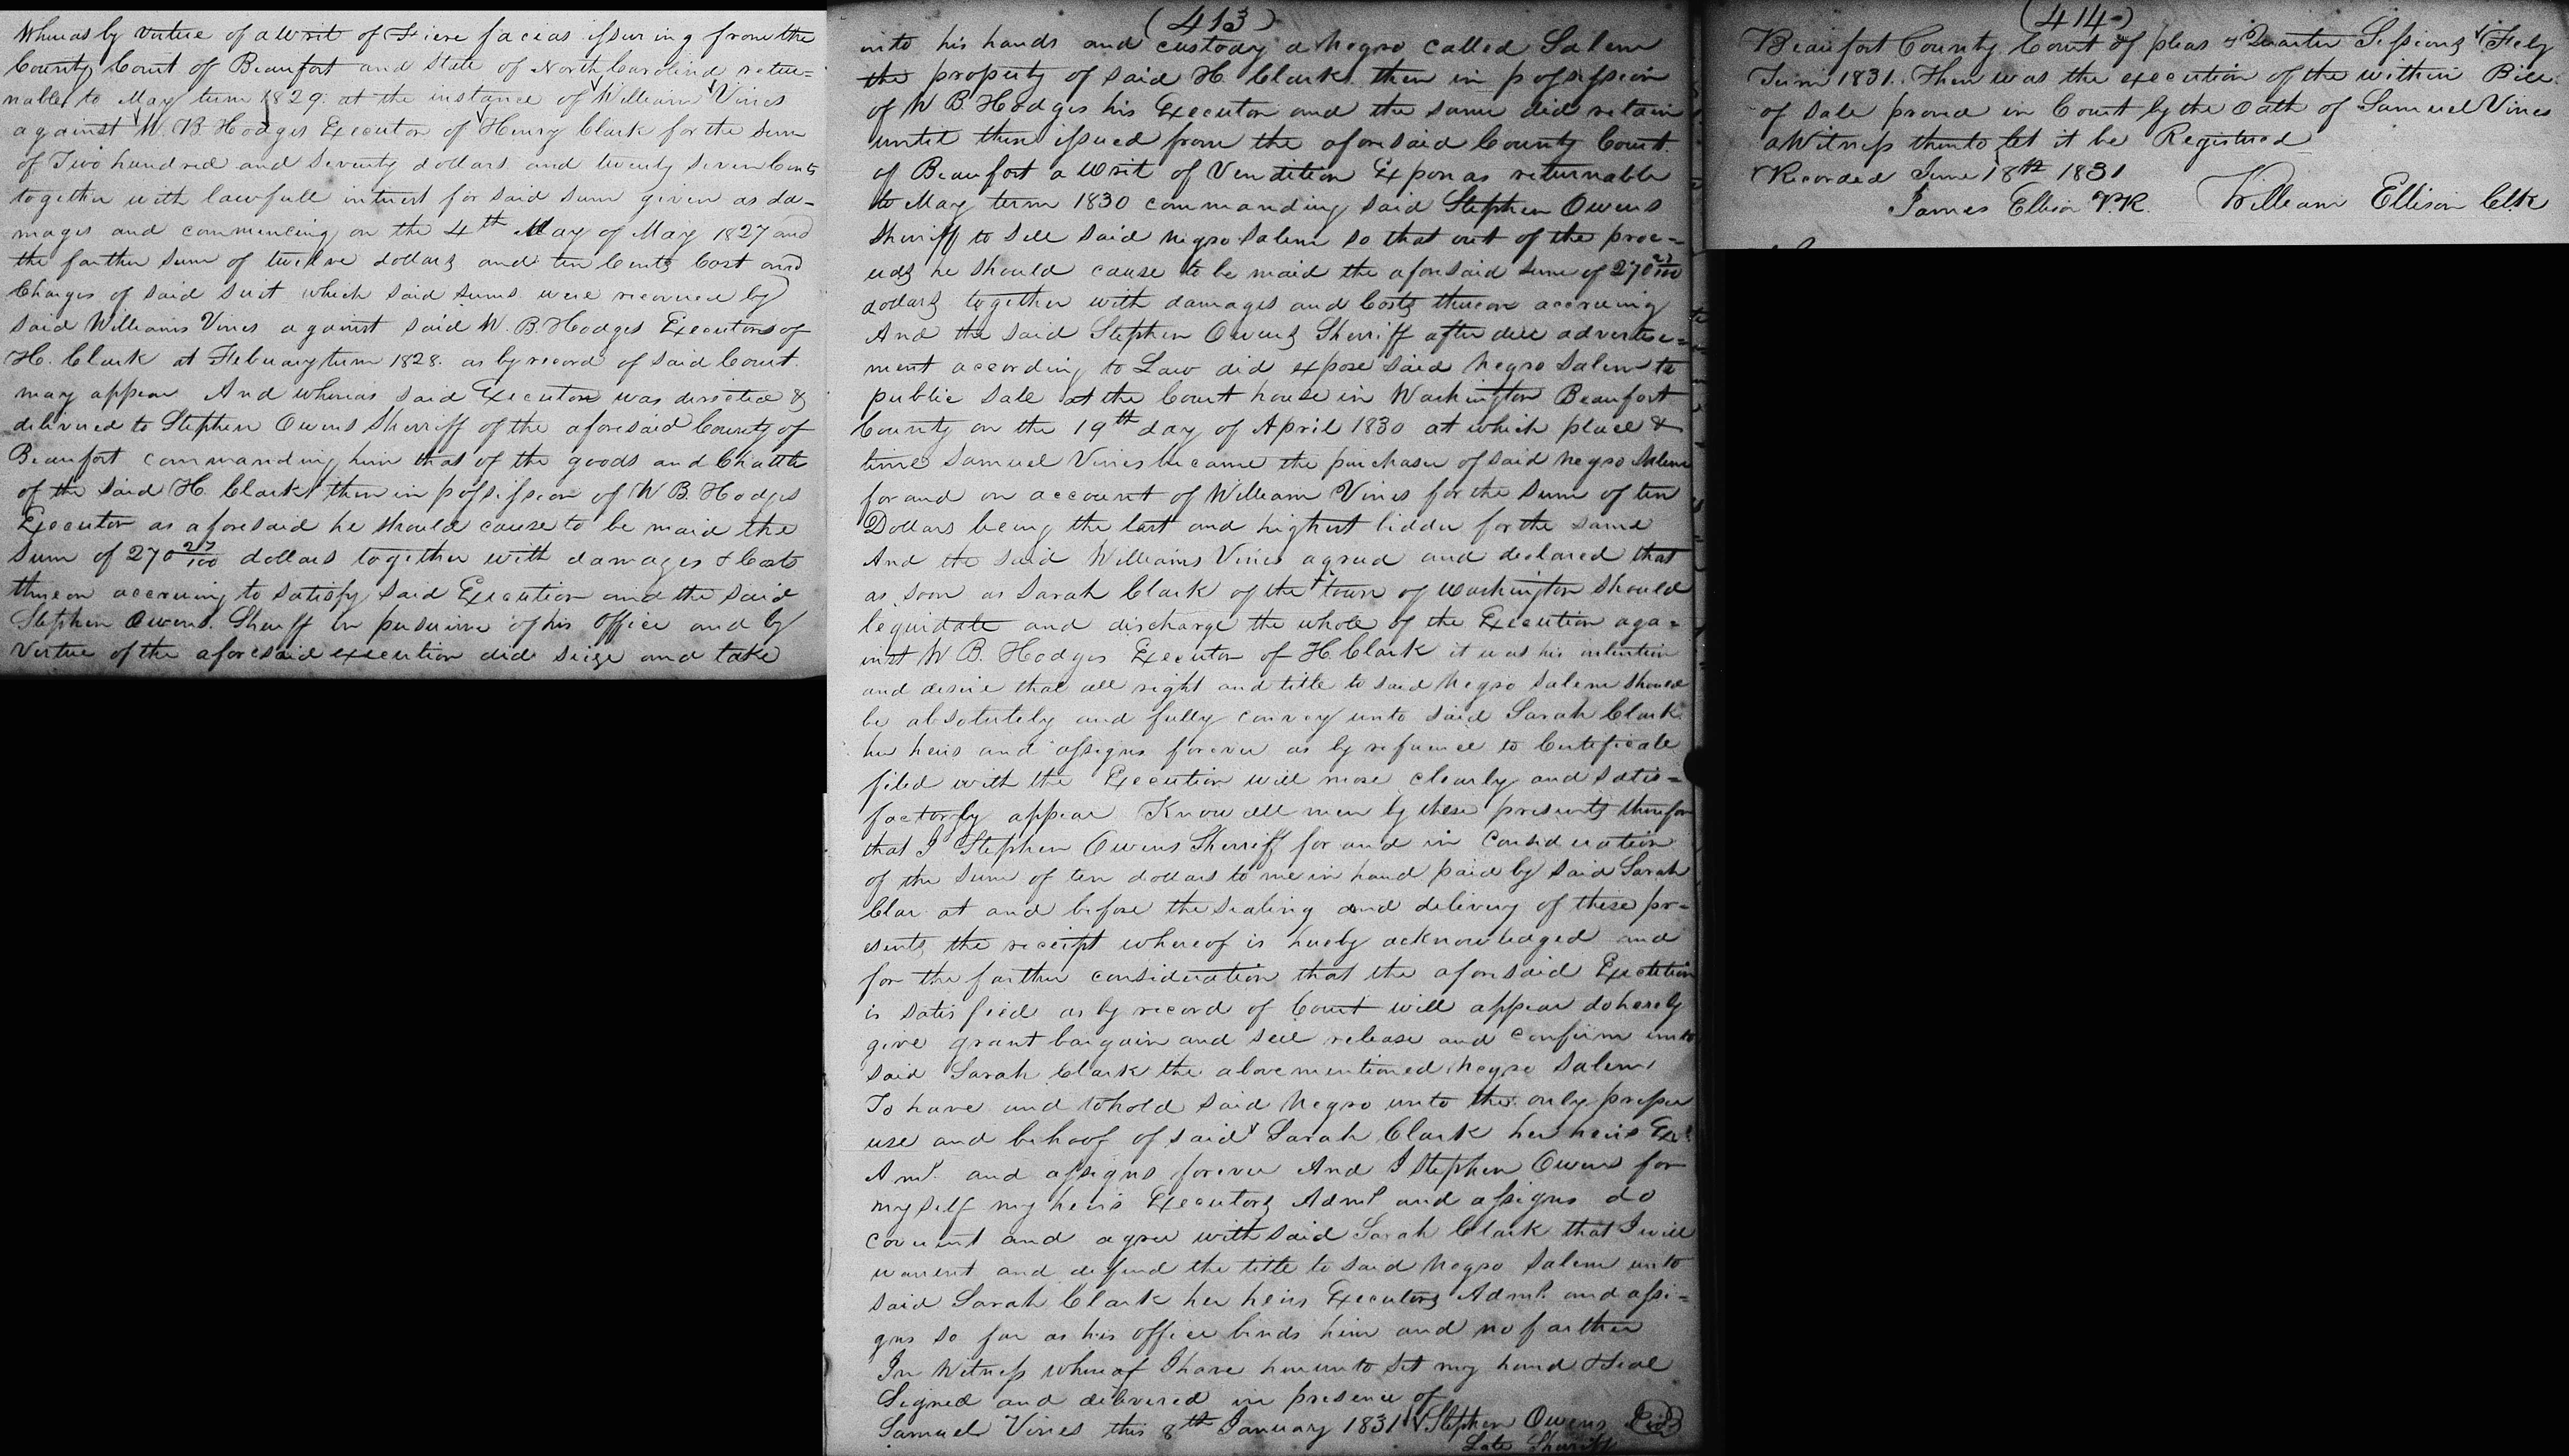 Whereas by virtue of a writ of Fiere facias issuring from the
County Court of Beaufort and State of North Carolina retur=
nable to May term 1829. at the instance of William Vines
against W. B. Hodges Executor of Henry Clark for the sum
of Two hundred and Seventy dollars and twenty seven Cents
together with lawfull interest for said sum given as da-
mages and commencing on the 4th May of May 1827 and
the farther sum of twelve dollars and ten Cents Cost and
Charges of said suit which said sums were recovered by
said Williams Vines against said W. B. Hodges Executors of
H. Clark at Febuary term 1828. as by record of said Court
may appear And whereas said Executon was directed &
delivered to Stephen Owens Sherriff of the aforesaid County of
Beaufort commanding him that of the goods and Chattle
of the said H. Clark then in possission of W B. Hodges
Executor as aforesaid he should cause to be maid the
sum of 270 27/100 dollars together with damages & Costs
thereon accruing to satisfy said Execution and the said
Stephen Owens. Sheriff in pursuine of his office and by
Virtue of the aforesaid execution did seize and take
(413)
into his hands and custody a Negro called Salem
the property of said H. Clark then in possission
of W B. Hodges his Executor and the same did retain
until there issued from the aforesaid County Court.
of Beaufort a writ of Vendition Exponas returnable
to May term 1830 commanding said Stephen Owens
Sherriff to sell said negro Salem so that out of the proc=
eeds he should cause to be maid the aforesaid sum of 270 27/100
dollars together with damages and Costs thereon accruing
And the said Stephen Owens Sherriff after due advertise=
ment according to Law did expose said Negro Salem to
public sale at the Court house in Washington Beaufort
County on the 19th day of April 1830 at which place &
time Samuel Vines became the purchaser of said negro Salem
for and on account of William Vines for the sum of ten
Dollars being the last and highest bidder for the same
And the said Williams Vines agreed and declared that
as soon as Sarah Clark of the town of Washington should
lequidate and discharge the whole of the Execution aga=
inst W B. Hodges Executor of H. Clark it was his intention
and desire that all right and title to said Negro Salem should
be absolutely and fully convey unto said Sarah Clark
her heirs and assigns forever as by refuence to Certeficate
filed with the Execution will more clearly and satis=
factorly appear Know all men by these presents therefor
that I Stephen Owens Sherriff for and in Consideration
of the sum of ten dollars to me in hand paid by said Sarah
Clar at and before the sealing and delivery of these pr=
esents the receipt whereof is hereby acknowledged and
for the farther consideration that the aforesaid Exectution
is satisfied as by record of Court will appear do hereby
give grant bargain and sell release and Confirm unto
said Sarah Clark the above mentioned Negro Salem
To have and to hold said Negro unto the only proper
use and behoof of said Sarah Clark her heirs Exe.
Am. and assigns forever And I Stephen Owens for
my self my heirs Executors Adm. and assigns do
covenent and agree with said Sarah Clark that I will
warrent and defend the title to said Negro Salem unto
said Sarah Clark her heirs Executors Adm. and assi=
gns so far as his office binds him and no farther
In Witness whereof I have hereunto set my hand & Seal
Signed and delivered in presence of
Samuel Vines this 8th January 1831 Stephen Owens Seal
Late Sherriff
(414)
Beaufort County Court of pleas & Quarter Sessions Feby
Term 1831. Then was the execution of the within Bill
of Sale proved in Court by the Oath of Samuel Vines
a Witness thereto let it be Registered
Recorded June 18th 1831
James Ellison P.R. William Ellison Clk